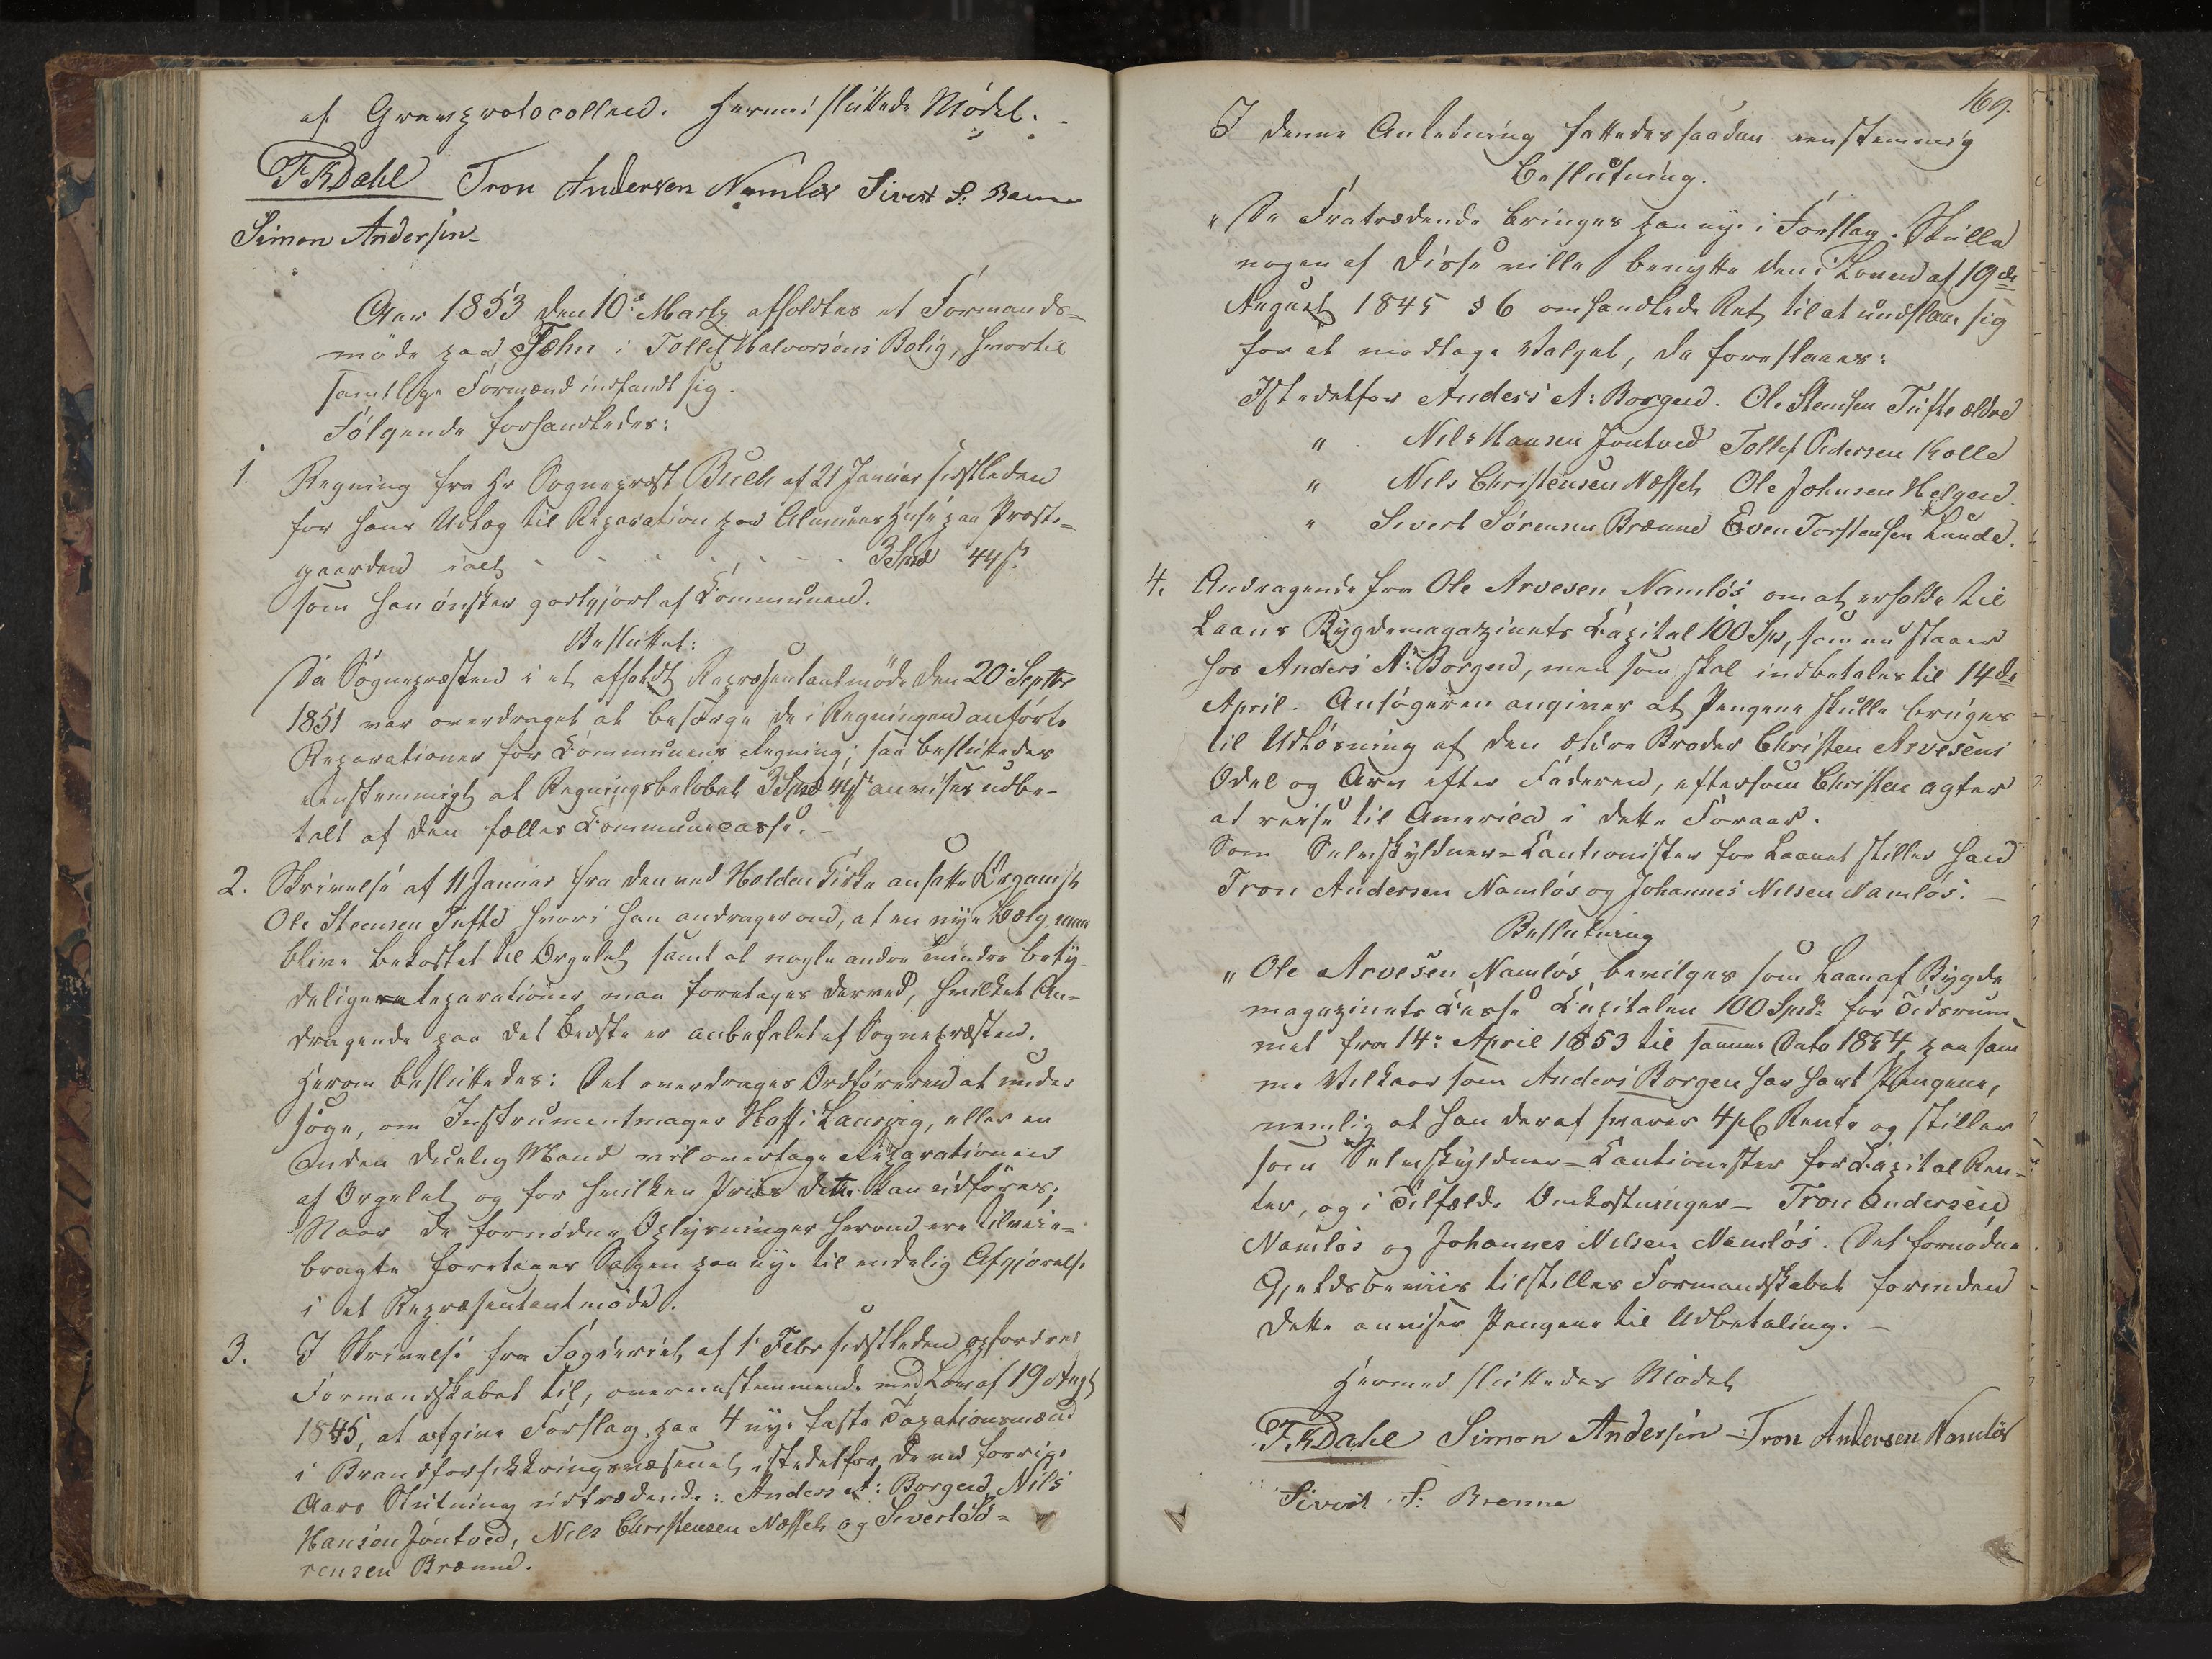 af Grændsprotocollen. Hermed sluttede Mödet.
FKDahl Tron Andersen Namlös Sivert S: Brenne
Simon Andersen
Aar 1853 den 10de Marts afholdtes et Formands-
möde paa Fæhn i Tollef Halvorsens Bolig, hvortil
samtlige Formænd indfandt sig.
Fölgende forhandledes:
1. Regning fra Hr Sognepræst Buck af 21 Januar sidstleden
for hans Udlæg til Reparation paa Huse paa Præste-
gaarden ialt - - - - - - 3 Spd 44 ß.
som han önsker godtgjort af Kommunen.
Besluttet:
Da Sognepræsten i et afholdt Repræsentantmöde den 20de Septbr
1851 var overdraget at besörge de i Regningen anförte
Reparationer for Kommunens Regning; saa besluttedes
eenstemmigt at Regningsbelöbet 3 Spd 44 ß anvises udbe-
talt af den fælles Kommunecasse. -
2. Skrivelse af 11 Januar fra den ved Holden Kirke ansatte Organist
Ole Steensen Tufte hvori han andrager om, at en nye Bælg maa
blive bekostet til Orgelet samt at nogle andre mindre bety-
delige reparationer maa foretages derved, hvilket An-
dragende paa det bedste er anbefalet af Sognepræsten.
Herom besluttedes: Det overdrages Ordföreren at under
söge, om Instrumentmager Hoff i Laurvig, eller en
anden duelig Mand vil overtage Reparationen
af Orgelet og for hvilken Priis dette kan udföres;
Naar de fornödne Oplysninger herom ere tilveie-
bragte foretages Sagen paa nye til endelig Afgjörelse
i et Repræsentantmöde.
3. I Skrivelse fra Fogderiet af 1 Febr sidstleden opfordres
Formandskabet til, overeensstemmende med Lov af 19 Augt
1845, at afgive Forslag paa 4 nye faste Taxationsmænd
i Brandforsikkringsvæsenet istedetfor de ved forrige
Aars Slutning udtrædende: Anders A: Borgen, Nils
Hansen Jøntved, Nils Christensen Næsset og Sivert Sö-
rensen Brænne.
169.
I denne Anledning fattedes saadan eenstemmig
Beslutning.
"De Fratrædende bringes paa nye i Forslag. Skulle
nogen af disse ville benytte den i Loven af 19de
August 1845 § 6 omhandlede Ret til at undslaae sig
for at modtage Valget, da foreslaaes:
Istedetfor Anders A: Borgen. Ole Steensen Tufte ældre
" Nils Hansen Jontved Tollef Pedersen Kolle
" Nils Christensen Næsset Ole Johnsen Helgen
" Sivert Sörensen Brænne Even Torstensen Lunde.
4. Andragende fra Ole Arvesen Namlös om at erholde til
Laans Bygdemagazinets Kapital 100 Spd, som nu staaer
hos Anders A: Borgen, men som skal indbetales til 14de
April. Ansögeren angiver at Pengene skulle bruges
til Udlösning af den ældre Broder Christen Arvesens
Odel og Arv efter Faderen, eftersom Christen agter
at reise til America i dette Foraar.
Som Selvskyldner-Kautionister for Laanet stiller han
Tron Andersen Namlös og Johannes Nilsen Namlös. -
Beslutning
"Ole Arvesen Namlös bevilges som Laan af Bygde
magazinets Kasse Kapitalen 100 Spd for Tidsrum-
met fra 14: April 1853 til samme Dato 1854 paa sam
me Vilkaar som Anders Borgen har havt Pengene,
nemlig at han deraf svarer 4 pC Rente og stiller
som Selvskyldner-Kautionister for Kapital Ren-
ter, og i Tilfælde Omkostninger - Tron Andersen
Namlös og Johannes Nilsen Namlös. Det fornödne
Gjeldsbeviis tilstilles Formandskabet forinden
dette anviser Pengene til Udbetaling. -
Hermed sluttedes Mödet
FKDahl Simon Andersen Tron Andersen Namlös
Sivert S: Brenne